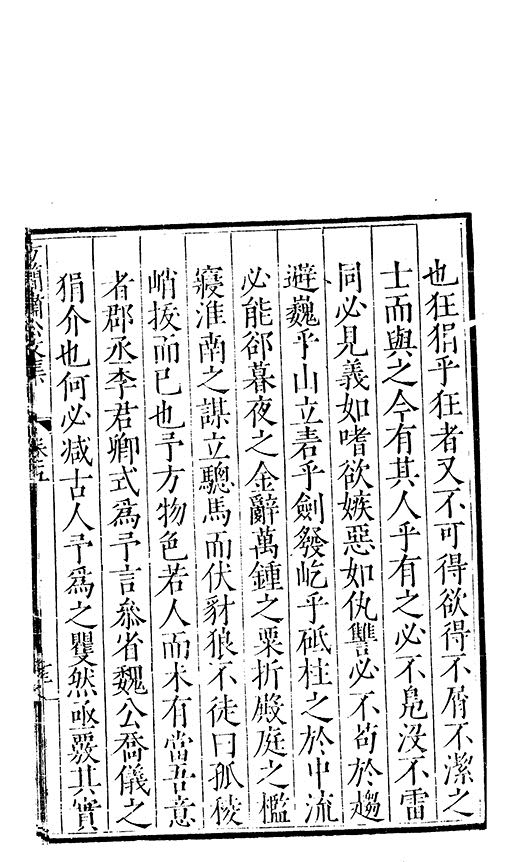 也狂狷乎狂者又不可得欲得不屑不潔之
士而與之今有其人乎有之必不鳧沒不雷
同必見義如嗜欲嫉惡如仇讐必不苟於趨
避巍乎山立砉乎劍發屹乎砥柱之於中流
必能郤暮夜之金辭萬鍾之粟折殿庭之檻
寢淮南之謀立驄馬而伏豺狼不徒曰孤稜
峭拔而已也予方物色若人而未有當吾意
者郡丞李君卿式爲予言叅省魏公喬儀之
狷介也何必减古人予爲之矍然亟覈其實
卷五